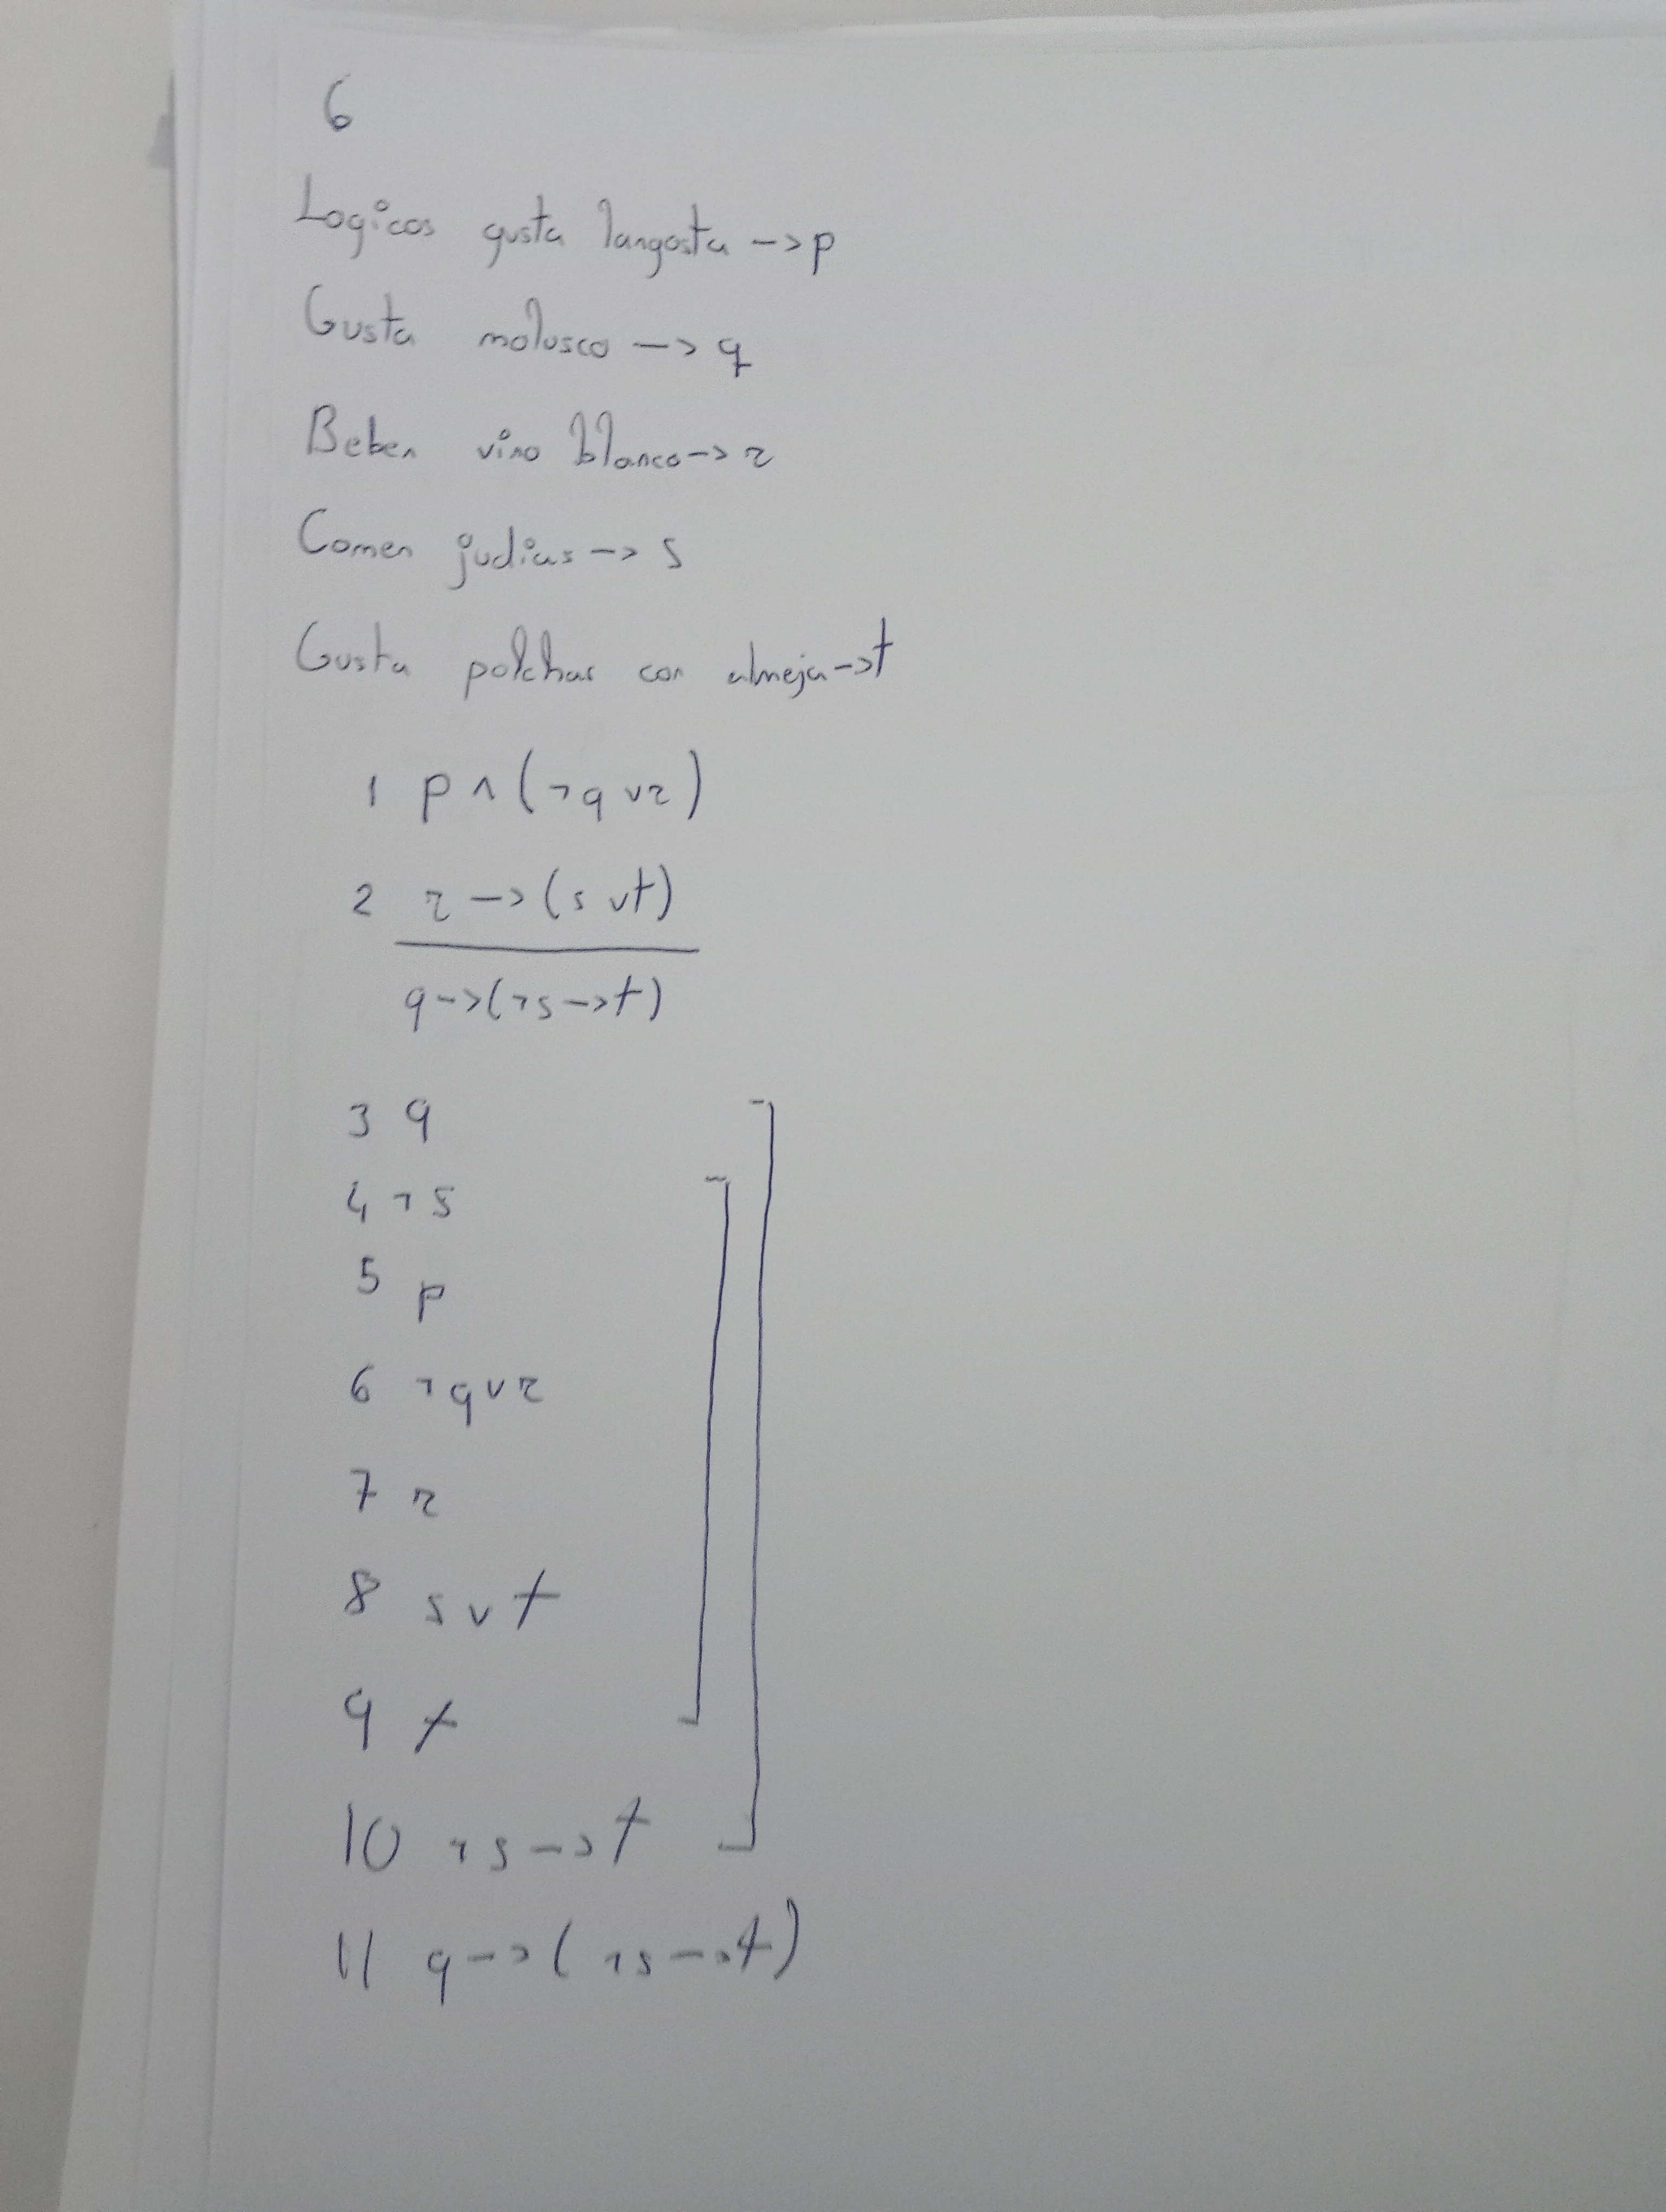 6
Logicos gusta langosta -> p
Gusta molusco -> q
Beben vino blanco -> r
Comen judias -> s
Gusta polchas con almeja -> t
1 p ∧ (¬q ∨ r)
2 r -> (s ∨ t)
q -> (¬s -> t)
3 q
4 ¬s
5 p
6 ¬q ∨ r
7 r
8 s ∨ t
9 t
10 ¬s -> t
11 q -> (¬s -> t)